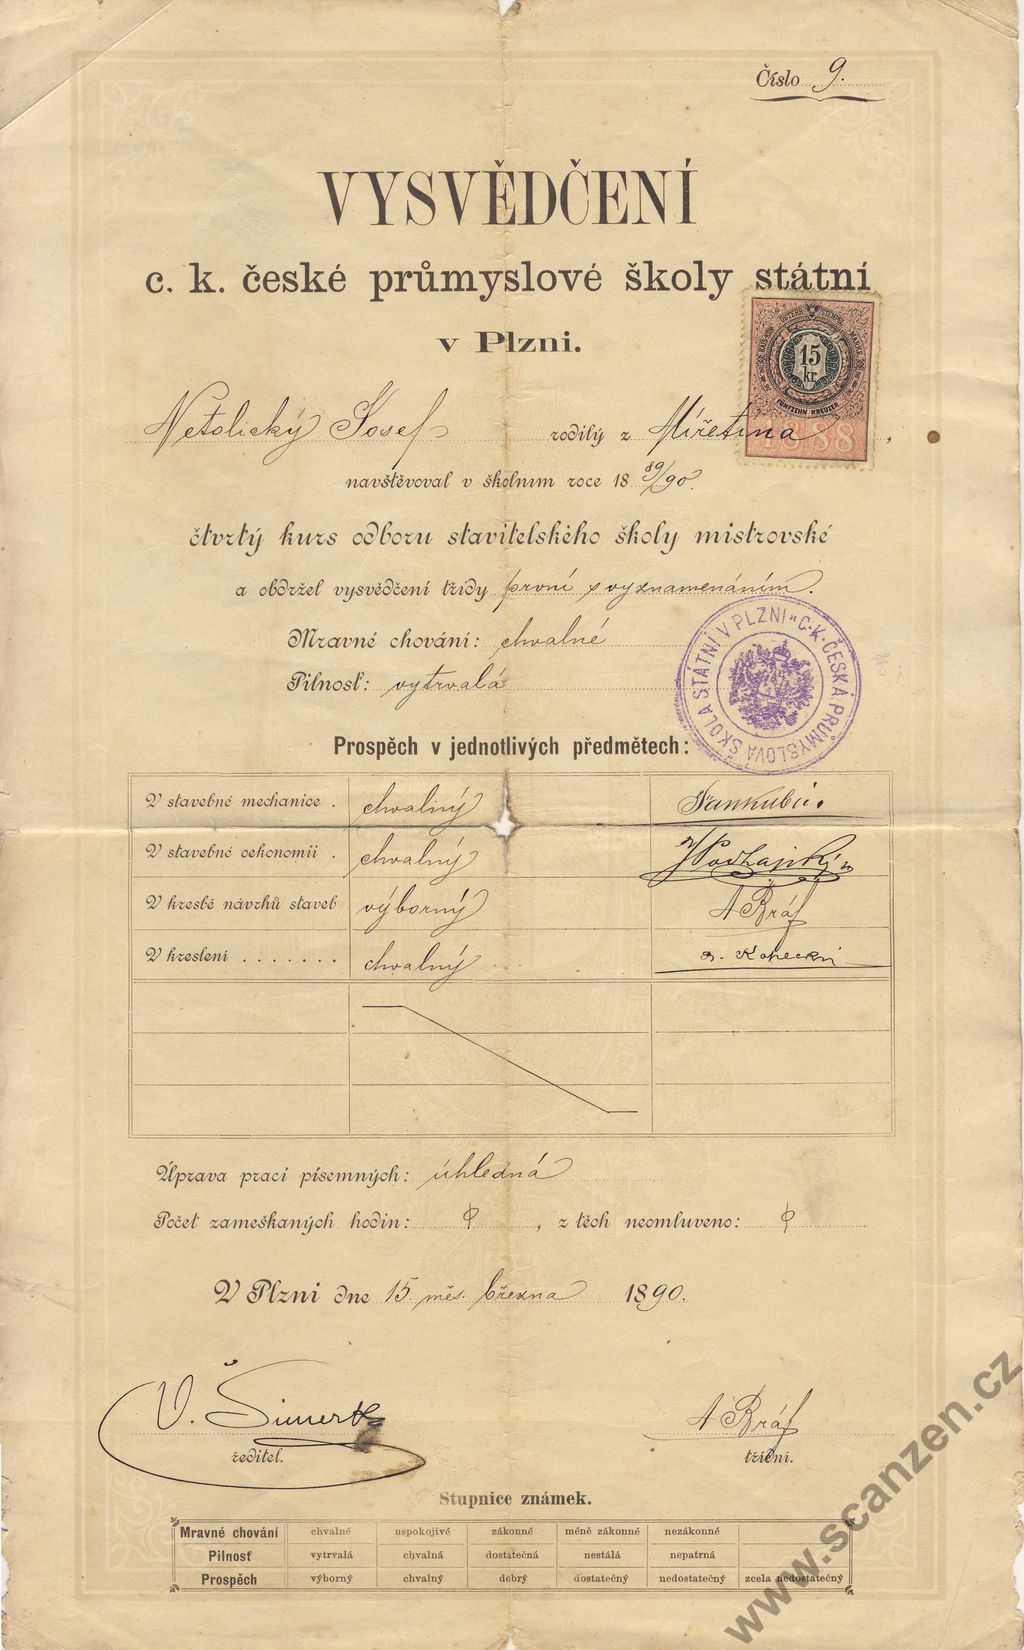 Číslo 9.
VYSVĚDČENÍ
c. k. české průmyslové školy státní
v Plzni.
15
kr
FÜNFZEHN KREUZER
1888
Netolický Josef rodilý z Mířetína,
navštěvoval v školním roce 1889/90.
čtvrtý kurs odboru stavitelského školy mistrovské
a obdržel vysvědčení třídy první s vyznamenáním.
Mravné chování: chvalné
Pilnosť: vytrvalá
C.K. ČESKÁ PRŮMYSLOVÁ ŠKOLA STÁTNÍ V PLZNI
Prospěch v jednotlivých předmětech:
V stavebné mechanice . chvalný
V stavebné oekonomii . chvalný
V kresbě návrhů staveb výborný A Bráf
V kreslení . . . . . . . chvalný
Úprava prací písemných: úhledná
Počet zameškaných hodin: , z těch neomluveno:
V Plzni dne 15. měs. března 1890.
V. Šimerka A Bráf
ředitel. třídní.
Stupnice známek.
Mravné chování chvalné uspokojivé zákonné méně zákonné nezákonné
Pilnosť vytrvalá chvalná dostatečná nestálá nepatrná
Prospěch výborný chvalný dobrý dostatečný nedostatečný zcela nedostatečný
www.scanzen.cz